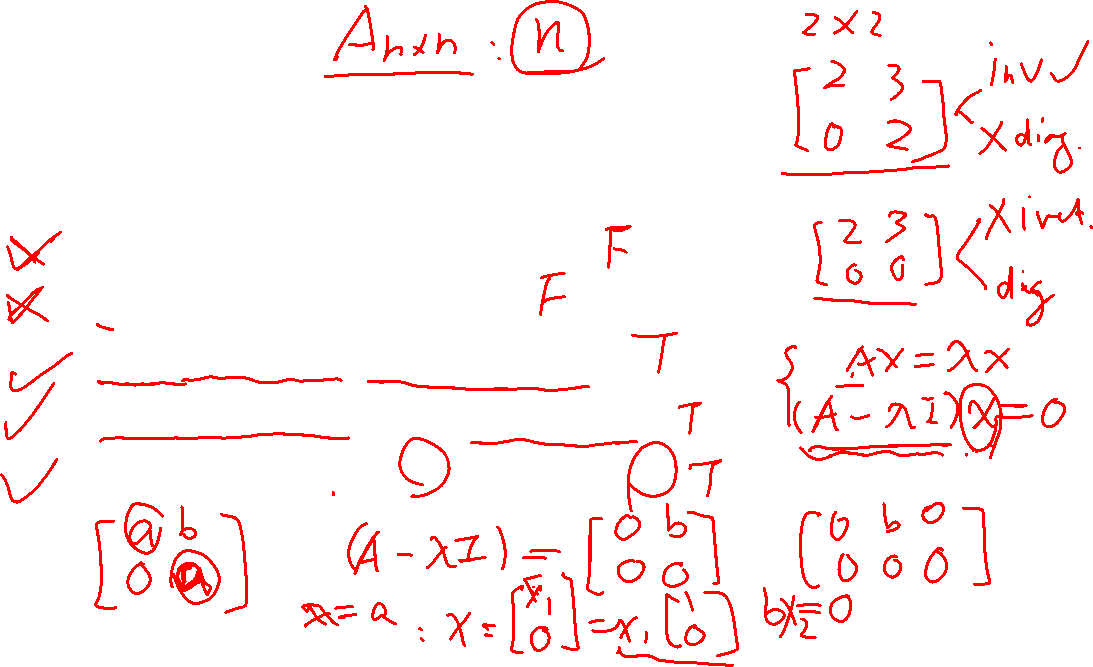 A n×n : n
2 × 2
[ 2 3
0 2 ]
inv ✓
X diag.
[ 2 3
0 0 ]
X ivet.
diag
F
F
T
AX = λX
(A - λI) X = 0
T
T
[ a b
0 a ]
(A - λI) = [ 0 b
0 0 ]
[ 0 b 0
0 0 0 ]
λ = a : X = [ x₁
0 ] = x₁ [ 1
0 ]
bx₂ = 0